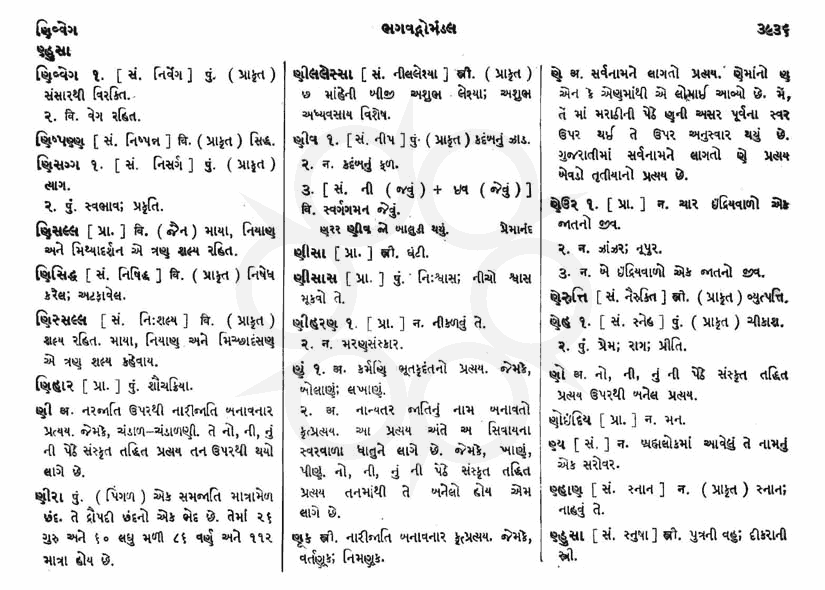 ણિવ્વેગ
ભગવદ્ગોમંડલ
૩૯૩૬
ણ્હુસા
ણિવ્વેગ ૧. [ સં. નિર્વેગ ] પું. ( પ્રાકૃત )
સંસારથી વિરક્તિ.
૨. વિ. વેગ રહિત.
ણિષ્પણ્ણ [ સં. નિષ્પન્ન ] વિ. ( પ્રાકૃત ) સિદ્ધ.
ણિસગ્ગ ૧. [ સં. નિસર્ગ ] પું. ( પ્રાકૃત )
ત્યાગ.
૨. પું. સ્વભાવ; પ્રકૃતિ.
ણિસલ્લ [ પ્રા. ] વિ. ( જૈન ) માયા, નિયાણ
અને મિથ્યાદર્શન એ ત્રણ શલ્ય રહિત.
ણિસિદ્ધ [ સં. નિષિદ્ધ ] વિ. ( પ્રાકૃત ) નિષેધ
કરેલ; અટકાવેલ.
ણિસ્સલ્લ [ સં. નિઃશલ્ય ] વિ. ( પ્રાકૃત )
શલ્ય રહિત. માયા, નિયાણ અને મિચ્છાદંસણ
એ ત્રણ શલ્ય કહેવાય.
ણિહાર [ પ્રા. ] પું. શૌચક્રિયા.
ણી અ. નરજાતિ ઉપરથી નારીજાતિ બનાવનાર
પ્રત્યય. જેમકે, ચંડાળ–ચંડાળણી. તે નો, ની, નું
ની પેઠે સંસ્કૃત તદ્ધિત પ્રત્યય તન ઉપરથી થયો
લાગે છે.
ણીરા પું. ( પિંગળ ) એક સમજાતિ માત્રામેળ
છંદ. તે દ્રૌપદી છંદનો એક ભેદ છે. તેમાં ૨૬
ગુરુ અને ૬૦ લઘુ મળી ૮૬ વર્ણ અને ૧૧૨
માત્રા હોય છે.
ણીલલેસ્સા [ સં. નીલલેશ્યા ] સ્ત્રી. ( પ્રાકૃત )
છ માંહેની બીજી અશુભ લેશ્યા; અશુભ
અધ્યવસાય વિશેષ.
ણીવ ૧. [ સં. નીપ ] પું. ( પ્રાકૃત ) કદંબનું ઝાડ.
૨. ન. કદંબનું ફળ.
૩. [ સં. ની ( જવું ) + ઇવ ( જેવું ) ]
વિ. સ્વર્ગગમન જેવું.
ણરર ણીવ એ બાલુડી થયું. પ્રેમાનંદ
ણીસા [ પ્રા. ] સ્ત્રી. ઘંટી.
ણીસાસ [ પ્રા. ] પું. નિઃશ્વાસ; નીચો શ્વાસ
મૂકવો તે.
ણીહરણ ૧. [ પ્રા. ] ન. નીકળવું તે.
૨. ન. મરણસંસ્કાર.
ણું ૧. અ. કર્મણિ ભૂતકૃદંતનો પ્રત્યય. જેમકે,
બોલાણું; લખાણું.
૨. અ. નાન્યતર જાતિનું નામ બનાવતો
કૃત્પ્રત્યય. આ પ્રત્યય અંતે અ સિવાયના
સ્વરવાળા ધાતુને લાગે છે. જેમકે, ખાણું,
પીણું. નો, ની, નું ની પેઠે સંસ્કૃત તદ્ધિત
પ્રત્યય તનમાંથી તે બનેલો હોય એમ
લાગે છે.
ણૂક સ્ત્રી. નારીજાતિ બનાવનાર કૃત્પ્રત્યય. જેમકે,
વર્તણૂક; નિમણૂક.
ણે અ. સર્વનામને લાગતો પ્રત્યય. ણેમાંનો ણ
એન કે એણમાંથી એ લોમાઈ આવ્યો છે. મેં,
તેં માં મરાઠીની પેઠે ણની અસર પૂર્વના સ્વર
ઉપર થઈ તે ઉપર અનુસ્વાર થયું છે.
ગુજરાતીમાં સર્વનામને લાગતો ણે પ્રત્યય
એવડો તૃતીયાનો પ્રત્યય છે.
ણેઉર ૧. [ પ્રા. ] ન. ચાર ઇંદ્રિયવાળો એક
જાતનો જીવ.
૨. ન. ઝાંઝર; નૂપુર.
૩. ન. બે ઇંદ્રિયવાળો એક જાતનો જીવ.
ણેરુત્તિ [ સં. નૈરુક્તિ ] સ્ત્રી. ( પ્રાકૃત ) વ્યુત્પત્તિ.
ણેહ ૧. [ સં. સ્નેહ ] પું. ( પ્રાકૃત ) ચીકાશ.
૨. પું. પ્રેમ; રાગ; પ્રીતિ.
ણો અ. નો, ની, નું ની પેઠે સંસ્કૃત તદ્ધિત
પ્રત્યય ઉપરથી બનેલ પ્રત્યય.
ણોઇંદ્રિય [ પ્રા. ] ન. મન.
ણ્ય [ સં. ] ન. બ્રહ્મલોકમાં આવેલું તે નામનું
એક સરોવર.
ણ્હાણ [ સં. સ્નાન ] ન. ( પ્રાકૃત ) સ્નાન;
નાહવું તે.
ણ્હુસા [ સં. સ્નુષા ] સ્ત્રી. પુત્રની વહુ; દીકરાની
સ્ત્રી.